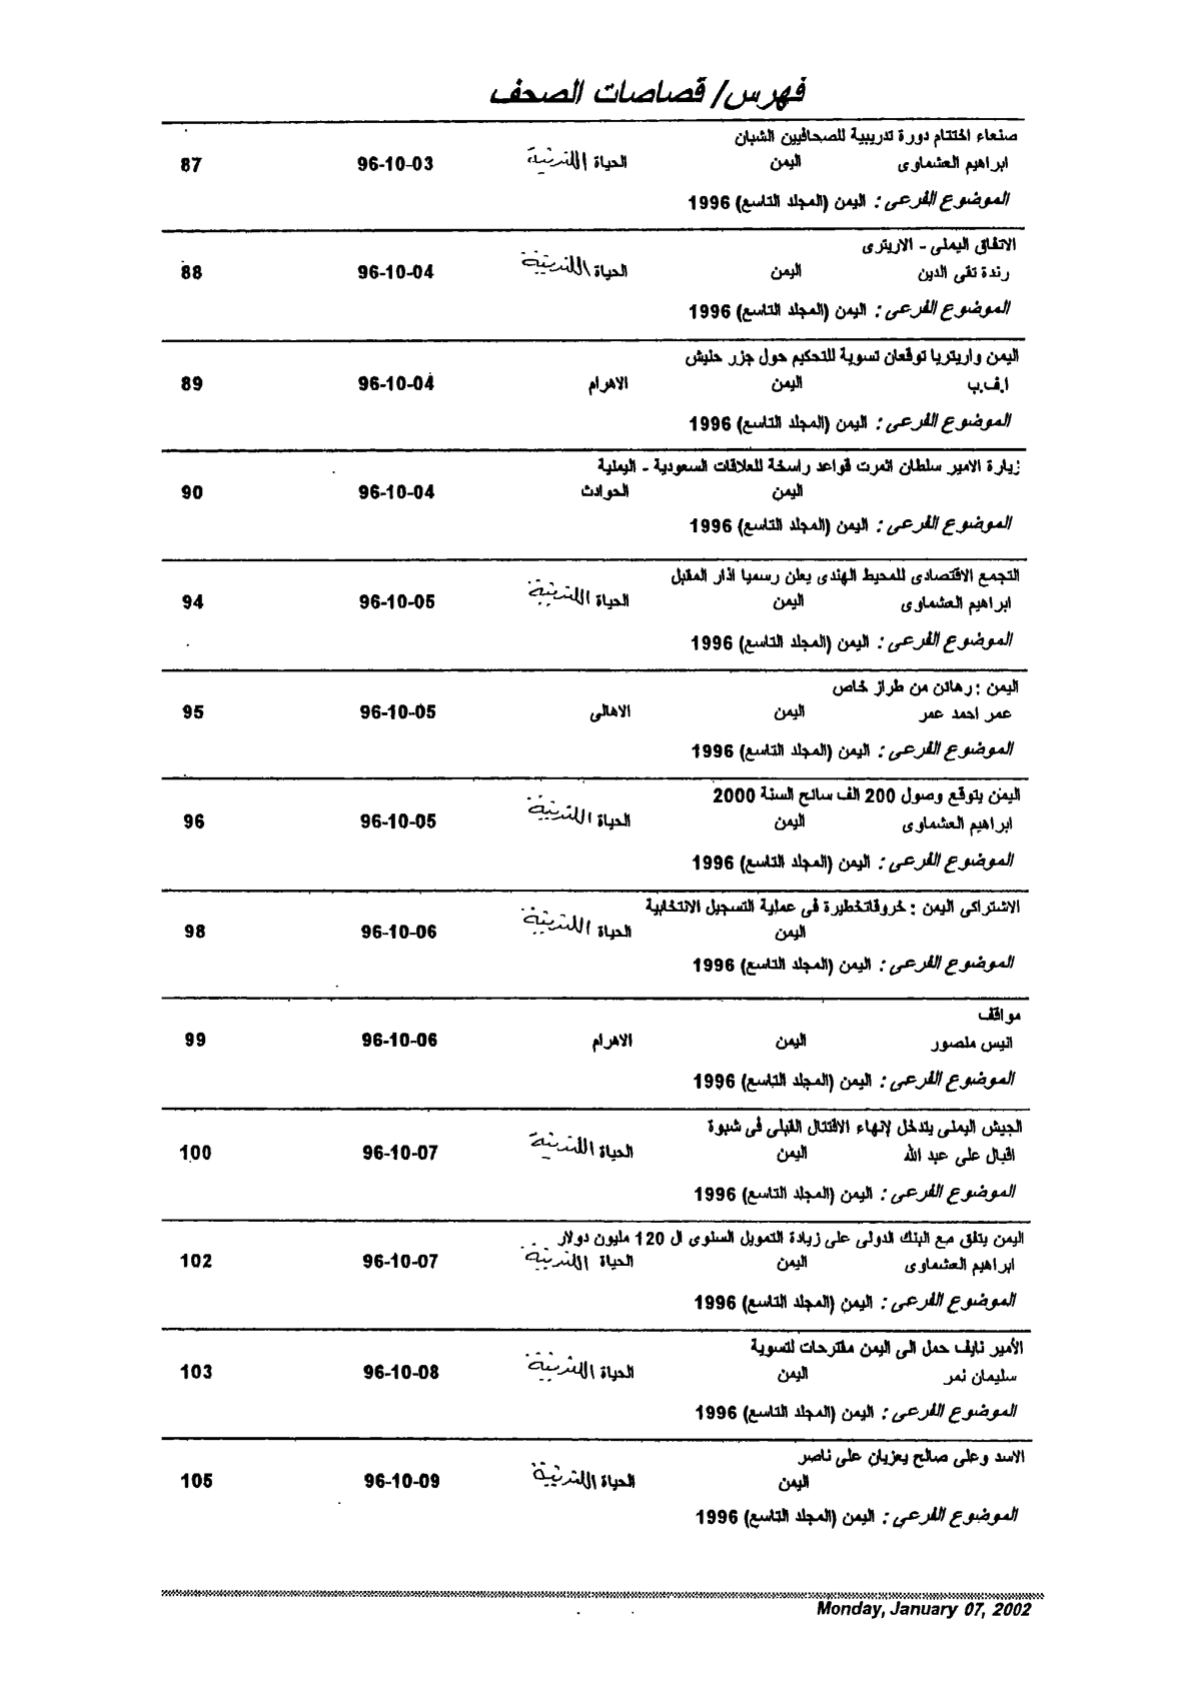 فهرس/ قصاصات الصحف
صنعاء اختتام دورة تدريبية للصحافيين الشبان
ابراهيم العشماوى اليمن الحياة اللندنية 96-10-03 87
الموضوع الفرعى : اليمن (المجلد التاسع) 1996
الاتفاق اليمنى - الاريترى
رندة تقى الدين اليمن الحياة اللندنية 96-10-04 88
الموضوع الفرعى : اليمن (المجلد التاسع) 1996
اليمن واريتريا توقعان تسوية للتحكيم حول جزر حنيش
ا.ف.ب اليمن الاهرام 96-10-04 89
الموضوع الفرعى : اليمن (المجلد التاسع) 1996
زيارة الامير سلطان اثمرت قواعد راسخة للعلاقات السعودية - اليمنية
اليمن الحوادث 96-10-04 90
الموضوع الفرعى : اليمن (المجلد التاسع) 1996
التجمع الاقتصادى للمحيط الهندى يعلن رسميا اذار المقبل
ابراهيم العشماوى اليمن الحياة اللندنية 96-10-05 94
الموضوع الفرعى : اليمن (المجلد التاسع) 1996
اليمن : رهائن من طراز خاص
عمر احمد عمر اليمن الاهالى 96-10-05 95
الموضوع الفرعى : اليمن (المجلد التاسع) 1996
اليمن يتوقع وصول 200 الف سائح السنة 2000
ابراهيم العشماوى اليمن الحياة اللندنية 96-10-05 96
الموضوع الفرعى : اليمن (المجلد التاسع) 1996
الاشتراكى اليمن : خروقاتخطيرة فى عملية التسجيل الانتخابية
اليمن الحياة اللندنية 96-10-06 98
الموضوع الفرعى : اليمن (المجلد التاسع) 1996
مواقف
انيس منصور اليمن الاهرام 96-10-06 99
الموضوع الفرعى : اليمن (المجلد التاسع) 1996
الجيش اليمنى يتدخل لإنهاء الاقتتال القبلى فى شبوة
اقبال على عبد الله اليمن الحياة اللندنية 96-10-07 100
الموضوع الفرعى : اليمن (المجلد التاسع) 1996
اليمن يتفق مع البنك الدولى على زيادة التمويل السنوى ال 120 مليون دولار
ابراهيم العشماوى اليمن الحياة اللندنية 96-10-07 102
الموضوع الفرعى : اليمن (المجلد التاسع) 1996
الأمير نايف حمل الى اليمن مقترحات لتسوية
سليمان نمر اليمن الحياة اللندنية 96-10-08 103
الموضوع الفرعى : اليمن (المجلد التاسع) 1996
الاسد وعلى صالح يعزيان على ناصر
اليمن الحياة اللندنية 96-10-09 105
الموضوع الفرعى : اليمن (المجلد التاسع) 1996
Monday, January 07, 2002